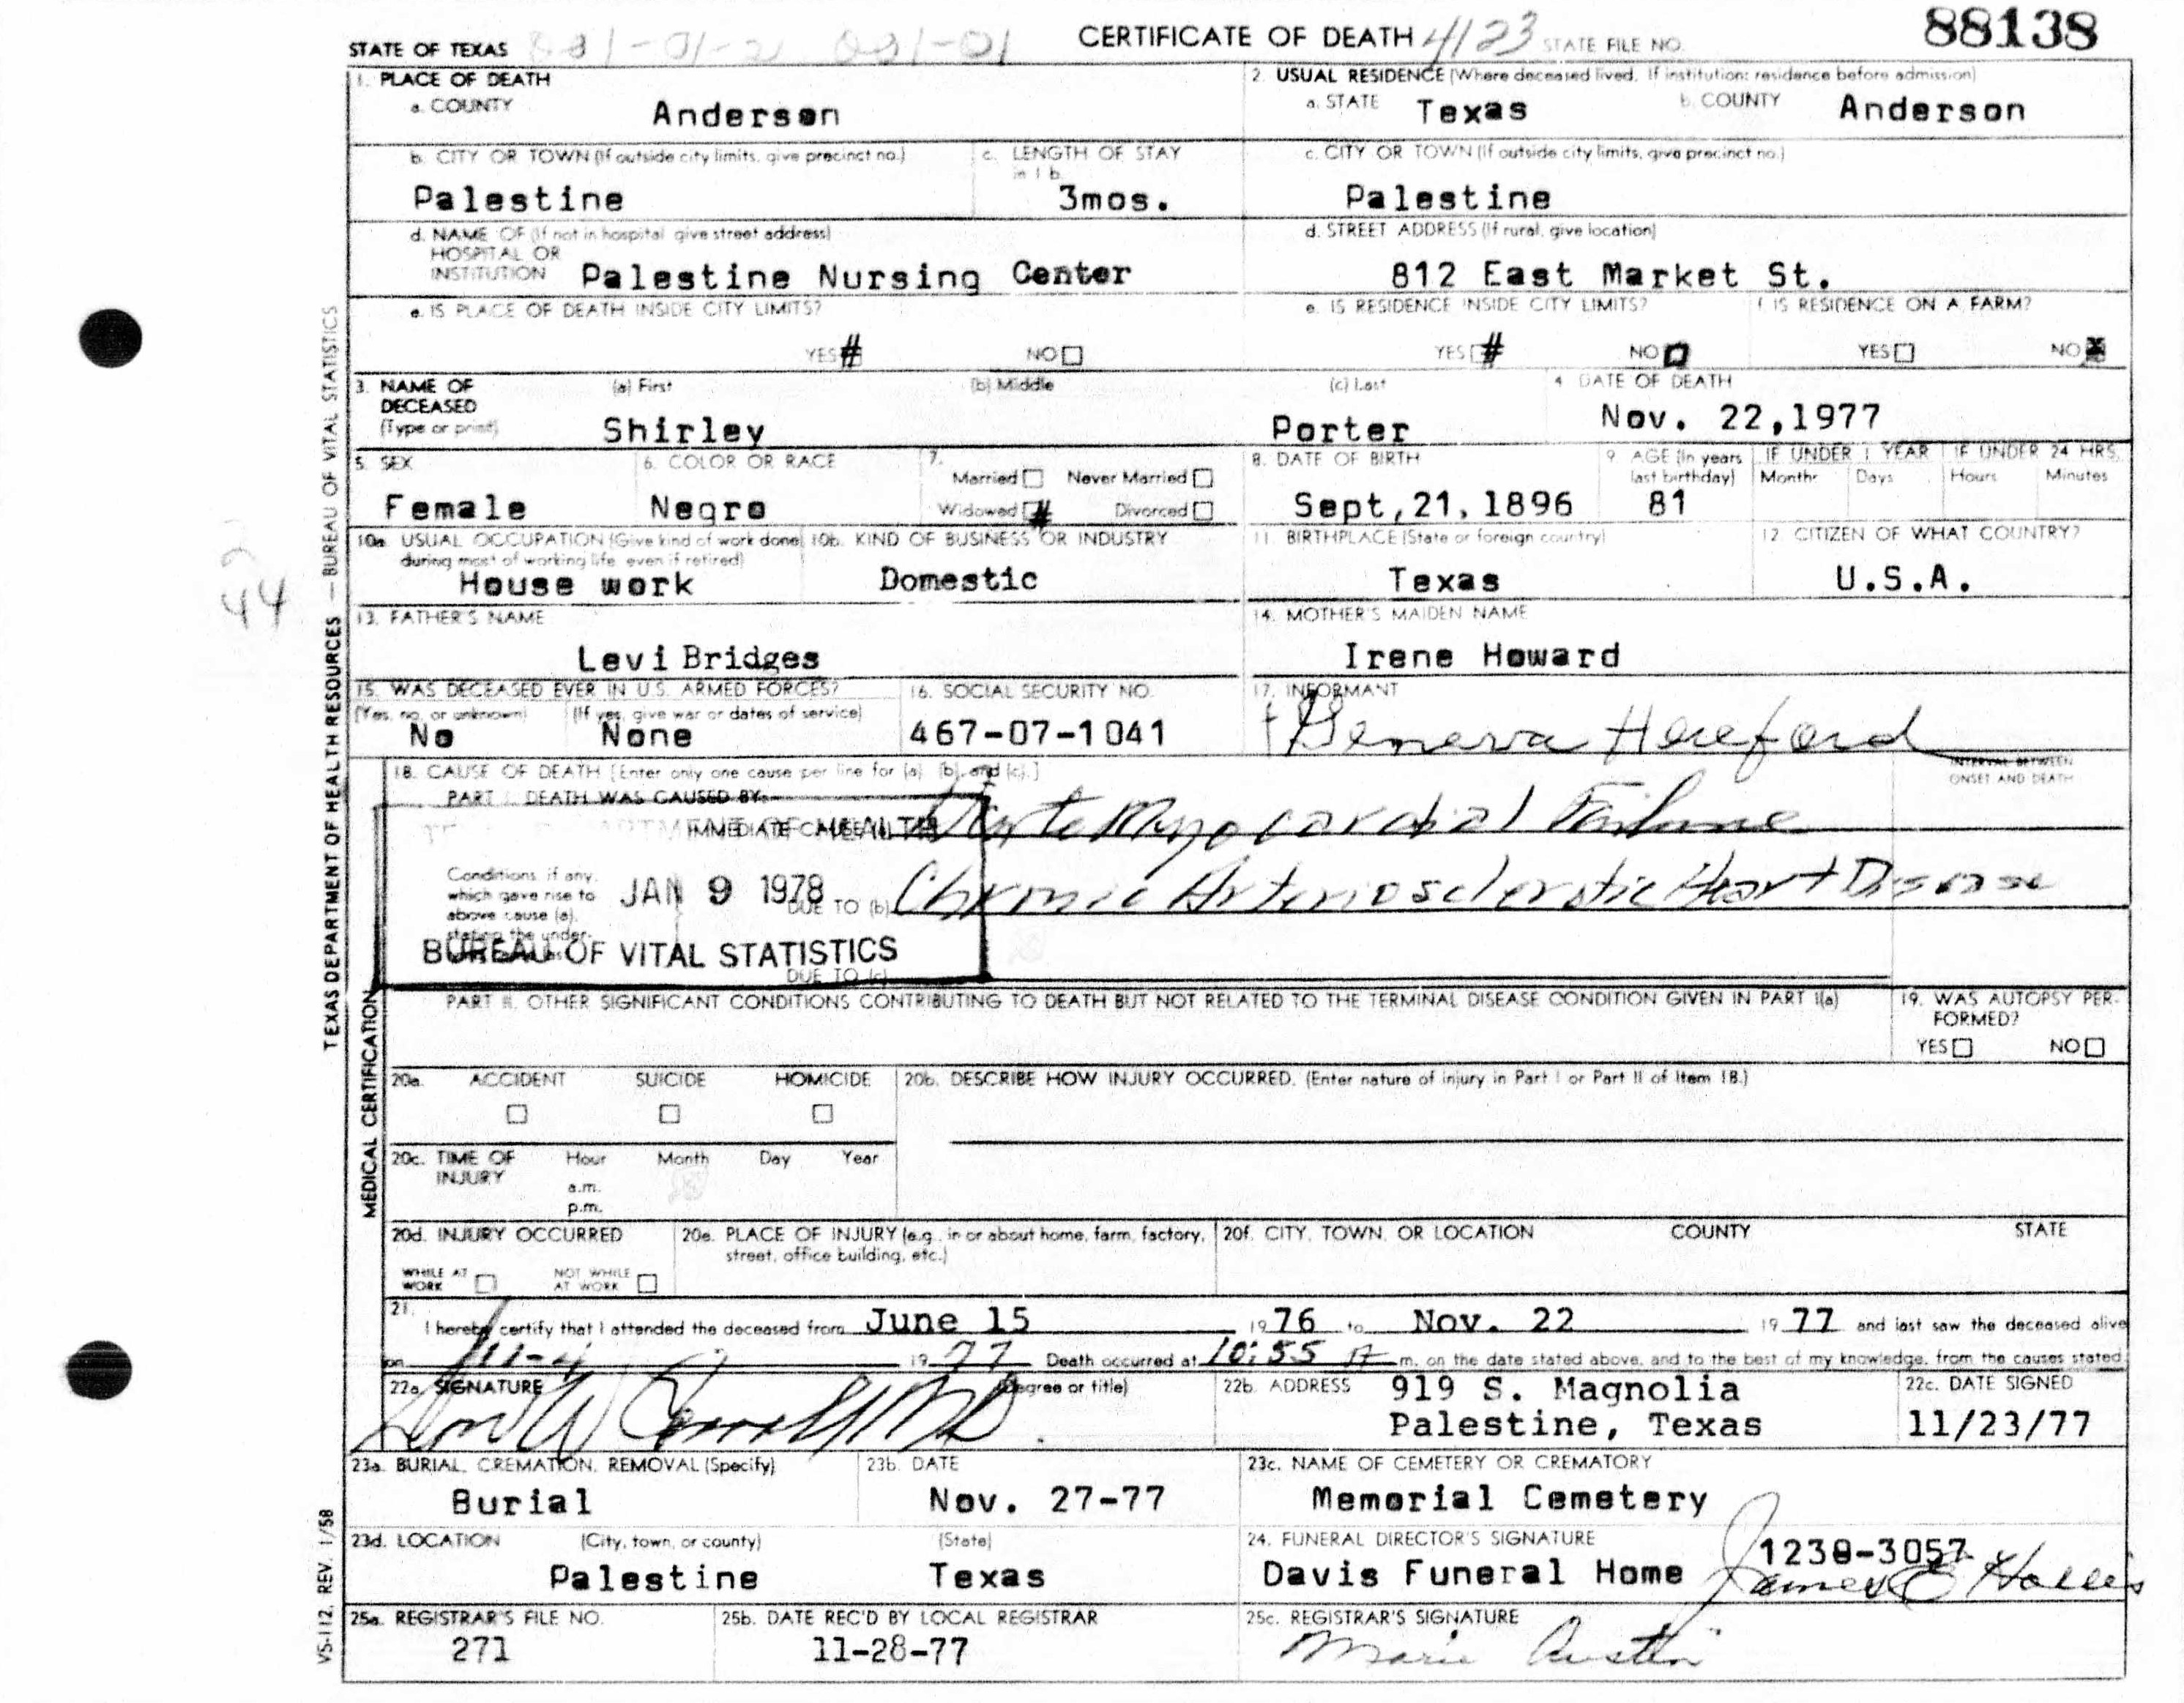 STATE OF TEXAS 001-01-2 001-01 CERTIFICATE OF DEATH 4123 STATE FILE NO. 88138
1. PLACE OF DEATH
a. COUNTY Anderson
2. USUAL RESIDENCE (Where deceased lived. If institution: residence before admission)
a. STATE Texas b. COUNTY Anderson
b. CITY OR TOWN (If outside city limits, give precinct no.) Palestine
c. LENGTH OF STAY in 1 b. 3mos.
c. CITY OR TOWN (If outside city limits, give precinct no.) Palestine
d. NAME OF (If not in hospital give street address)
HOSPITAL OR
INSTITUTION Palestine Nursing Center
d. STREET ADDRESS (If rural, give location)
812 East Market St.
e. IS PLACE OF DEATH INSIDE CITY LIMITS?
YES # NO
e. IS RESIDENCE INSIDE CITY LIMITS?
YES # NO
f. IS RESIDENCE ON A FARM?
YES NO X
3. NAME OF DECEASED (Type or print)
(a) First Shirley
(b) Middle
(c) Last Porter
4. DATE OF DEATH
Nov. 22,1977
5. SEX
Female
6. COLOR OR RACE
Negro
7. Married Never Married
Widowed # Divorced
8. DATE OF BIRTH
Sept,21,1896
9. AGE (In years last birthday)
81
IF UNDER 1 YEAR Months Days
IF UNDER 24 HRS. Hours Minutes
10a. USUAL OCCUPATION (Give kind of work done during most of working life even if retired)
House work
10b. KIND OF BUSINESS OR INDUSTRY
Domestic
11. BIRTHPLACE (State or foreign country)
Texas
12. CITIZEN OF WHAT COUNTRY?
U.S.A.
13. FATHER'S NAME
Levi Bridges
14. MOTHER'S MAIDEN NAME
Irene Howard
15. WAS DECEASED EVER IN U.S. ARMED FORCES?
(Yes, no, or unknown) (If yes, give war or dates of service)
No None
16. SOCIAL SECURITY NO.
467-07-1041
17. INFORMANT
Geneva Hereford
18. CAUSE OF DEATH [Enter only one cause per line for (a) (b), and (c).]
INTERVAL BETWEEN ONSET AND DEATH
PART I. DEATH WAS CAUSED BY:
IMMEDIATE CAUSE (a) Acute Myocardial Failure
Conditions if any, which gave rise to above cause (a), stating the under-
DUE TO (b) Chronic Arteriosclerotic Heart Disease
DUE TO (c)
DEPARTMENT OF HEALTH
JAN 9 1978
BUREAU OF VITAL STATISTICS
PART II. OTHER SIGNIFICANT CONDITIONS CONTRIBUTING TO DEATH BUT NOT RELATED TO THE TERMINAL DISEASE CONDITION GIVEN IN PART I(a)
19. WAS AUTOPSY PERFORMED?
YES NO
20a. ACCIDENT SUICIDE HOMICIDE
20b. DESCRIBE HOW INJURY OCCURRED. (Enter nature of injury in Part I or Part II of Item 18.)
20c. TIME OF INJURY Hour Month Day Year
a.m.
p.m.
20d. INJURY OCCURRED
WHILE AT WORK NOT WHILE AT WORK
20e. PLACE OF INJURY (e.g., in or about home, farm, factory, street, office building, etc.)
20f. CITY, TOWN, OR LOCATION COUNTY STATE
21. I hereby certify that I attended the deceased from June 15 1976 to Nov. 22 1977 and last saw the deceased alive
on 11-4 1977 Death occurred at 10:55 A m. on the date stated above, and to the best of my knowledge, from the causes stated.
22a. SIGNATURE (Degree or title)
MD
22b. ADDRESS 919 S. Magnolia
Palestine, Texas
22c. DATE SIGNED
11/23/77
23a. BURIAL, CREMATION, REMOVAL (Specify)
Burial
23b. DATE
Nov. 27-77
23c. NAME OF CEMETERY OR CREMATORY
Memorial Cemetery
23d. LOCATION (City, town, or county) (State)
Palestine Texas
24. FUNERAL DIRECTOR'S SIGNATURE
Davis Funeral Home 1238-3057
James E Hollis
25a. REGISTRAR'S FILE NO.
271
25b. DATE REC'D BY LOCAL REGISTRAR
11-28-77
25c. REGISTRAR'S SIGNATURE
Marie Austin
TEXAS DEPARTMENT OF HEALTH RESOURCES — BUREAU OF VITAL STATISTICS
MEDICAL CERTIFICATION
VS-112, REV. 1/58
2
44